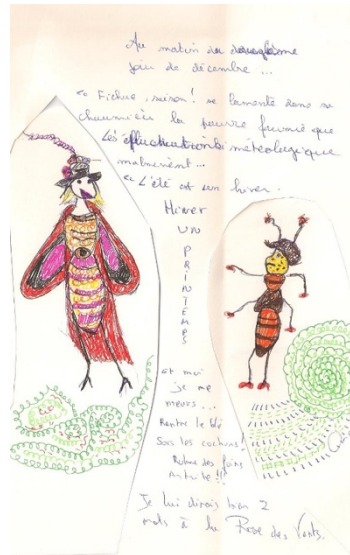 Au matin du douzième
jour de décembre ...
" Fichue saison ! se lamente dans sa
chaumière la pauvre fourmi que
les éfluctuations météologique
malmènent ...
" L'été est un hiver.
Hiver
UN
PRINTEMPS
et moi
je me
meurs ...
Rentre le blé
Sors les cochons !
Rhume des foins
Arthrite !!!
Je lui dirais bien 2
mots à la Rose des Vents.